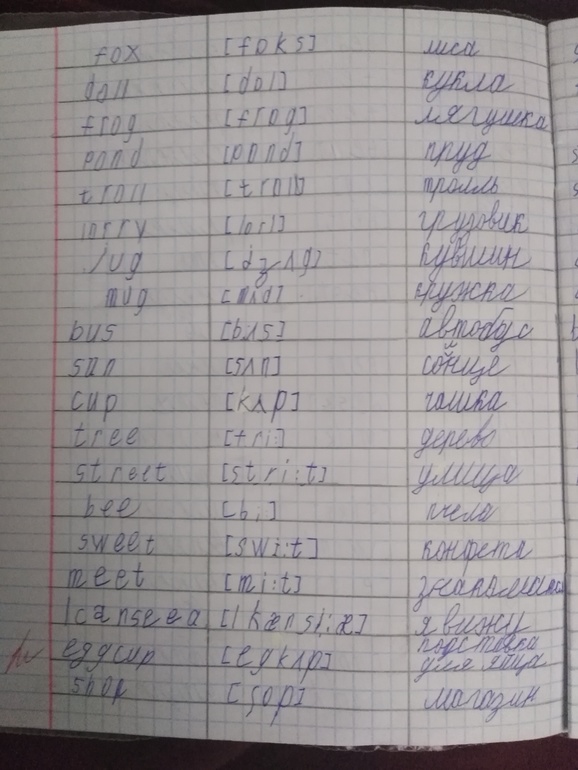 fox [foks] лиса
doll [dol] кукла
frog [frog] лягушка
pond [pond] пруд
troll [troll] тролль
lorry [lori] грузовик
jug [dʒʌg] кувшин
mug [mʌg] кружка
bus [bʌs] автобус
sun [sʌn] солнце
cup [kʌp] чашка
tree [tri:] дерево
street [stri:t] улица
bee [bi:] пчела
sweet [swi:t] конфета
meet [mi:t]
I can see a я вижу
eggcup [egkʌp] подставка
для яйца
shop [ʃop] магазин